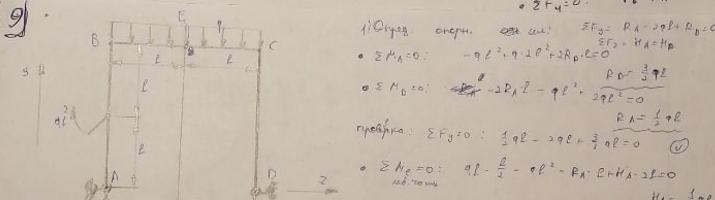 ΣFy=0:
9)
E
q
B
C
l
l
y
l
ql²
l
A
D
z
1) Опред. опорн. сил: ΣFy = RA - 2ql + RD = 0
ΣFz = HA = HD
• ΣMA=0: -ql² + q·2l² + 2RD·l = 0
RD = 3/2 ql
• ΣMD=0: -2RA l - ql² + 2ql² = 0
RA = 1/2 ql
проверка: ΣFy=0: 1/2 ql - 2ql + 3/2 ql = 0
• ΣME=0: ql · l/2 - ql² - RA·l + HA·2l = 0
лев. часть